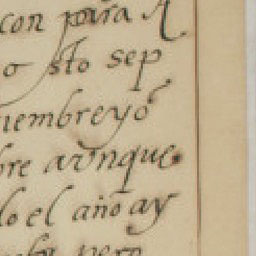 con para A
o sto sep
iembre yo
bre avnque
do el año ay
pero